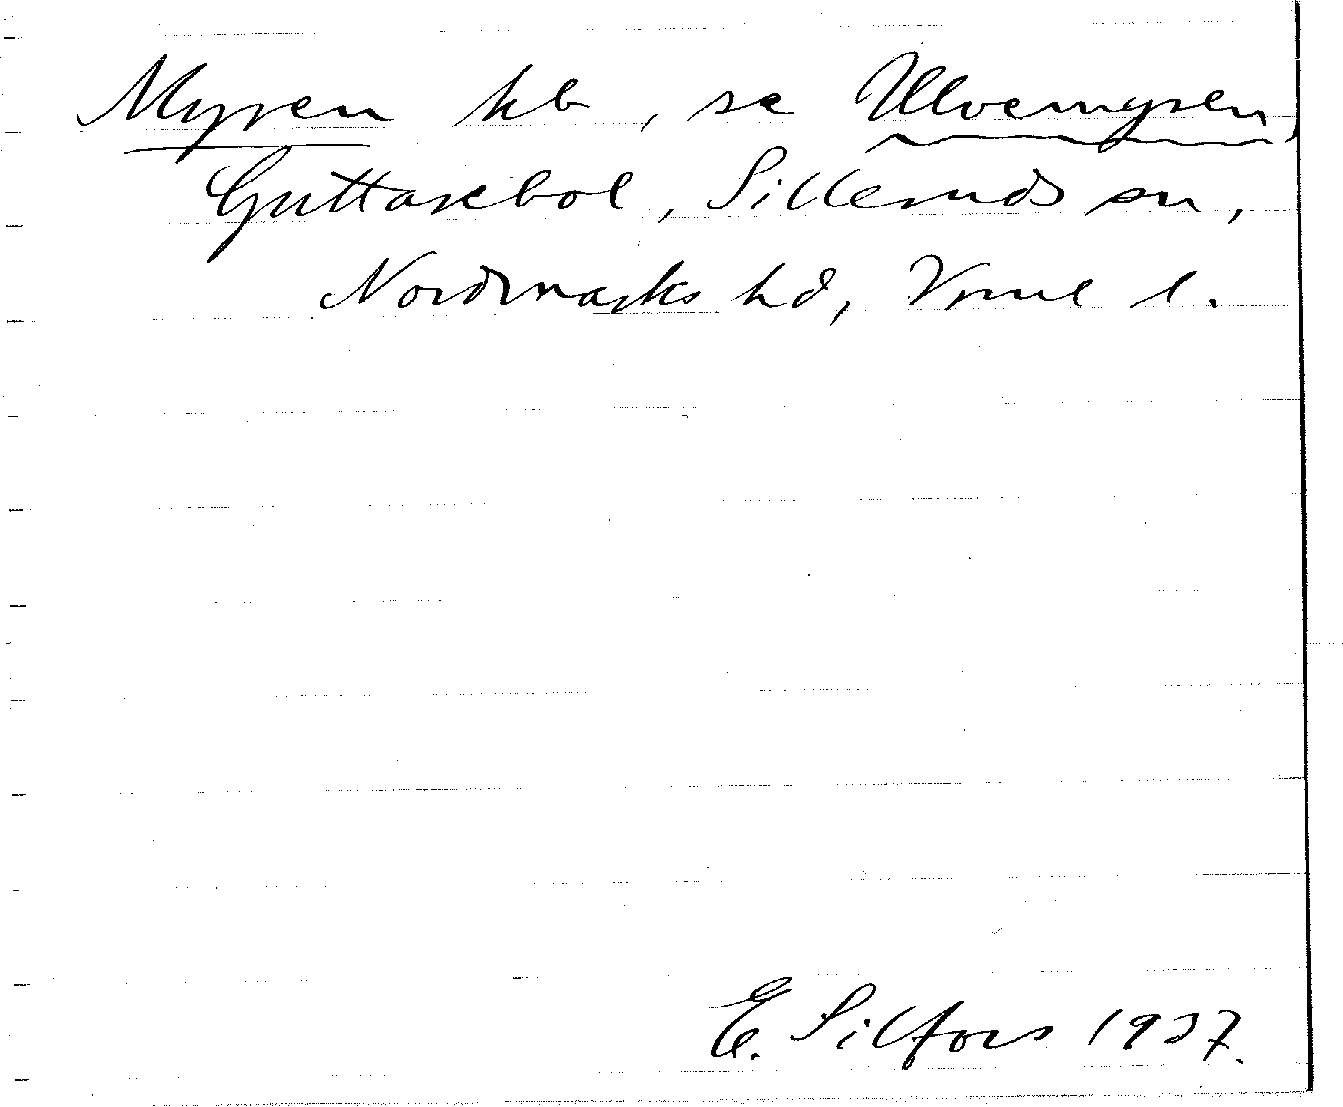 Myren hb, se Ulvemyren,
Guttarebol, Silleruds sn,
Nordmarks hd, Vrml l.
E. Silfors 1937.